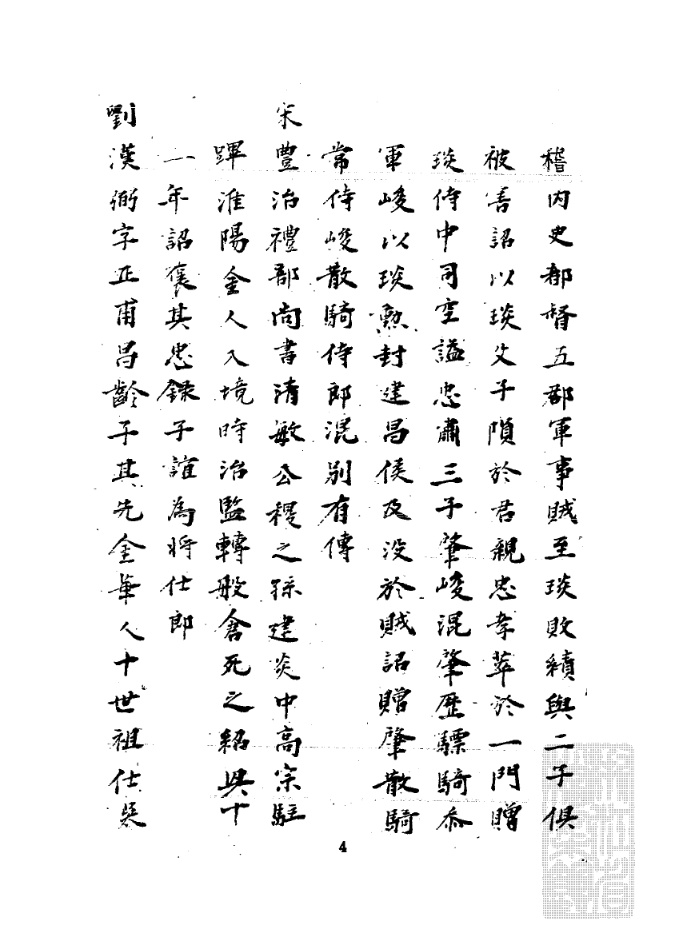 稽内史都督五郡軍事賊至琰敗績與二子俱
被害詔以琰父子隕於君親忠孝萃於一門贈
琰侍中司空謚忠肅三子肇峻混肇歷驃騎叅
軍峻以琰勲封建昌侯及没於賊詔贈肇散騎
常侍峻散騎侍郎混别有傳
宋豊治禮部尚書清敏公稷之孫建炎中高宗駐
蹕淮陽金人入境時治監轉般倉死之紹興十
一年詔褒其忠錄子誼為將仕郎
劉漢弼字正甫昌齡子其先金華人十世祖仕吴
4